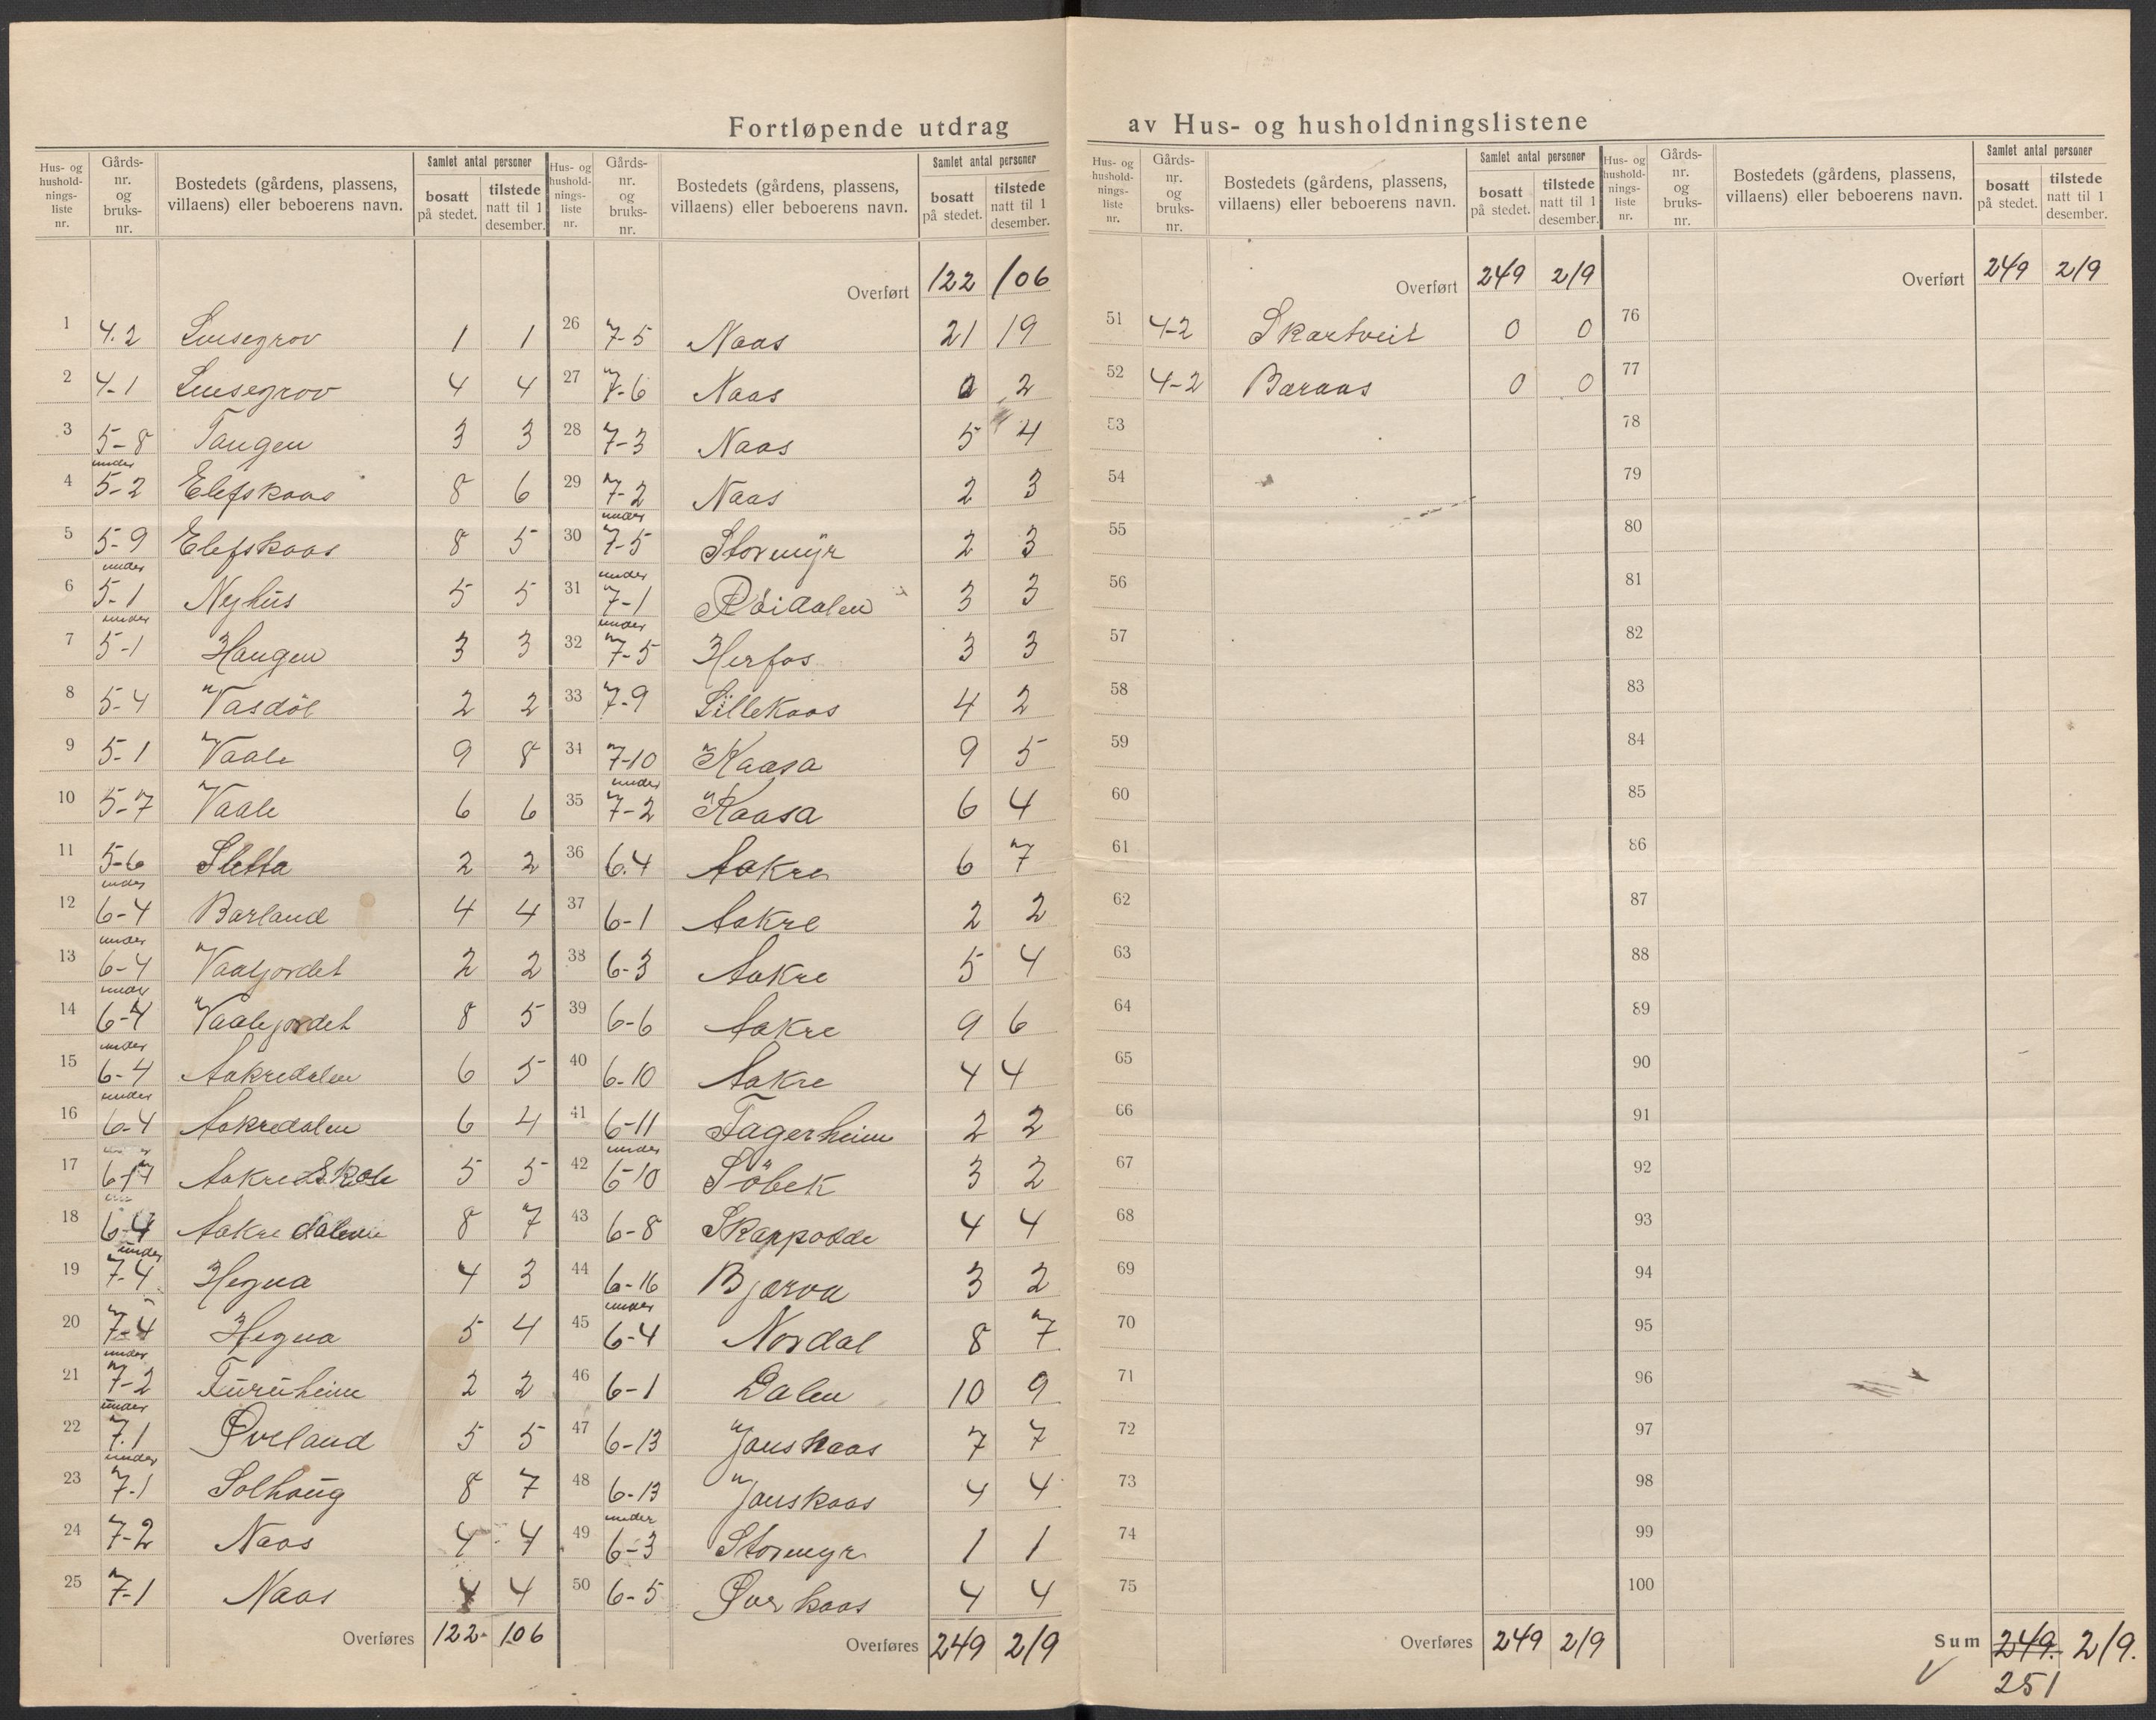 Fortløpende utdrag av Hus- og husholdningslistene
Hus- og hushold-nings-liste nr. | Gårds-nr. og bruks-nr. | Bostedets (gårdens, plassens, villaens) eller beboerens navn. | Samlet antal personer | bosatt på stedet. | tilstede natt til 1 desember.
1 4.2 Lusegrov 1 1
2 4-1 Lusegrov 4 4
3 5-8 Tangen 3 3
4 under 5-2 Elefskaas 8 6
5 5-9 Elefskaas 8 5
6 under 5-1 Nyhus 5 5
7 under 5-1 Haugen 3 3
8 5-4 Vasdöl 2 2
9 5-1 Vaale 9 8
10 5-7 Vaale 6 6
11 5-6 Sletta 2 2
12 under 6-4 Barland 4 4
13 under 6-4 Vaaljordet 2 2
14 under 6-4 Vaalejordet 8 5
15 under 6-4 Aakredalen 6 5
16 under 6-4 Aakredalen 6 4
17 Aakre Skole 5 5
18 6-4 Aakredalen 8 7
19 under 7-4 Hegna 4 3
20 7-4 Hegna 5 4
21 under 7-2 Furuheim 2 2
22 under 7.1 Øverland 5 5
23 under 7-1 Solhaug 8 7
24 7-2 Naas 4 4
25 7-1 Naas 4 4
Overføres 122 106
Hus- og hushold-nings-liste nr. | Gårds-nr. og bruks-nr. | Bostedets (gårdens, plassens, villaens) eller beboerens navn. | Samlet antal personer | bosatt på stedet. | tilstede natt til 1 desember.
Overført 122 106
26 7-5 Naas 21 19
27 7-6 Naas 0 2
28 7-3 Naas 5 4
29 7-2 Naas 2 3
30 under 7-5 Stormyr 2 3
31 under 7-1 Röidalen 3 3
32 under 7-5 Herfos 3 3
33 7-9 Lillekaas 4 2
34 7-10 Kaasa 9 5
35 under 7-2 Kaasa 6 4
36 6.4 Aakre 6 7
37 6-1 Aakre 2 2
38 6-3 Aakre 5 4
39 6-6 Aakre 9 6
40 6-10 Aakre 4 4
41 6-11 Fagerheim 2 2
42 under 6-10 Söbek 3 2
43 6-8 Skarpodde 4 4
44 6-16 Bjørva 3 2
45 under 6-4 Nordal 8 7
46 6-1 Dalen 10 9
47 6-13 Jonskaas 7 7
48 6-13 Jonskaas 4 4
49 under 6-3 Stormyr 1 1
50 6-5 Øverkaas 4 4
Overføres 249 219
Hus- og hushold-nings-liste nr. | Gårds-nr. og bruks-nr. | Bostedets (gårdens, plassens, villaens) eller beboerens navn. | Samlet antal personer | bosatt på stedet. | tilstede natt til 1 desember.
Overført 249 219
51 4-2 Skartveit 0 0
52 4-2 Baraas 0 0
53
54
55
56
57
58
59
60
61
62
63
64
65
66
67
68
69
70
71
72
73
74
75
Overføres 249 219
Hus- og hushold-nings-liste nr. | Gårds-nr. og bruks-nr. | Bostedets (gårdens, plassens, villaens) eller beboerens navn. | Samlet antal personer | bosatt på stedet. | tilstede natt til 1 desember.
Overført 249 219
76
77
78
79
80
81
82
83
84
85
86
87
88
89
90
91
92
93
94
95
96
97
98
99
100
Sum 249. 219.
251